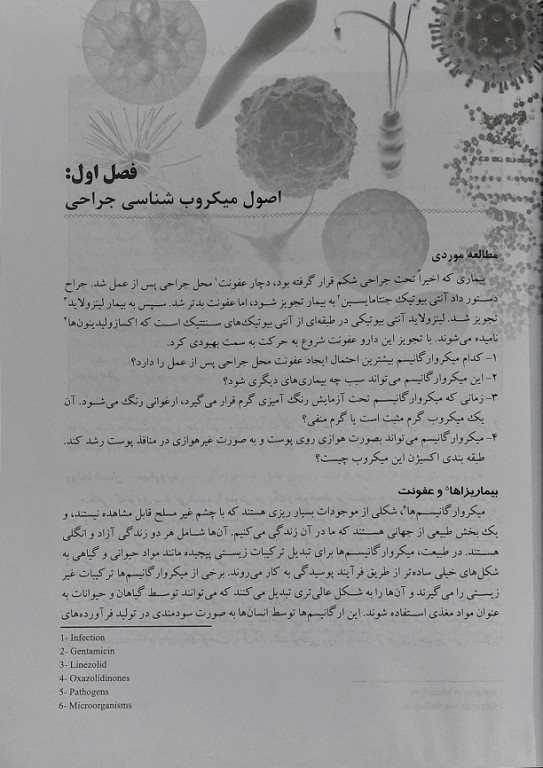 فصل اول:
اصول میکروب شناسی جراحی
مطالعه موردی
بیماری که اخیراً تحت جراحی شکم قرار گرفته بود، دچار عفونت۱ محل جراحی پس از عمل شد. جراح
دستور داد آنتی بیوتیک جنتامایسین۲ به بیمار تجویز شود، اما عفونت بدتر شد. سپس به بیمار لینزولاید۳
تجویز شد. لینزولاید آنتی بیوتیکی در طبقه‌ای از آنتی بیوتیک‌های سنتتیک است که اکسازولیدینون‌ها۴
نامیده می‌شوند. با تجویز این دارو عفونت شروع به حرکت به سمت بهبودی کرد.
۱- کدام میکروارگانیسم بیشترین احتمال ایجاد عفونت محل جراحی پس از عمل را دارد؟
۲- این میکروارگانیسم می‌تواند سبب چه بیماری‌های دیگری شود؟
۳- زمانی که میکروارگانیسم تحت آزمایش رنگ آمیزی گرم قرار می‌گیرد، ارغوانی رنگ می‌شود. آن
یک میکروب گرم مثبت است یا گرم منفی؟
۴- میکروارگانیسم می‌تواند بصورت هوازی روی پوست و به صورت غیرهوازی در منافذ پوست رشد کند.
طبقه بندی اکسیژن این میکروب چیست؟
بیماریزاها۵ و عفونت
میکروارگانیسم‌ها۶، شکلی از موجودات بسیار ریزی هستند که با چشم غیر مسلح قابل مشاهده نیستند، و
یک بخش طبیعی از جهانی هستند که ما در آن زندگی می‌کنیم. آن‌ها شامل هر دو زندگی آزاد و انگلی
هستند. در طبیعت، میکروارگانیسم‌ها برای تبدیل ترکیبات زیستی پیچیده مانند مواد حیوانی و گیاهی به
شکل‌های خیلی ساده‌تر از طریق فرآیند پوسیدگی به کار می‌روند. برخی از میکروارگانیسم‌ها ترکیبات غیر
زیستی را می‌گیرند و آن‌ها را به شکل عالی‌تری تبدیل می‌کنند که می‌توانند توسط گیاهان و حیوانات به
عنوان مواد مغذی استفاده شوند. این ارگانیسم‌ها توسط انسان‌ها به صورت سودمندی در تولید فرآورده‌های
1- Infection
2- Gentamicin
3- Linezolid
4- Oxazolidinones
5- Pathogens
6- Microorganisms